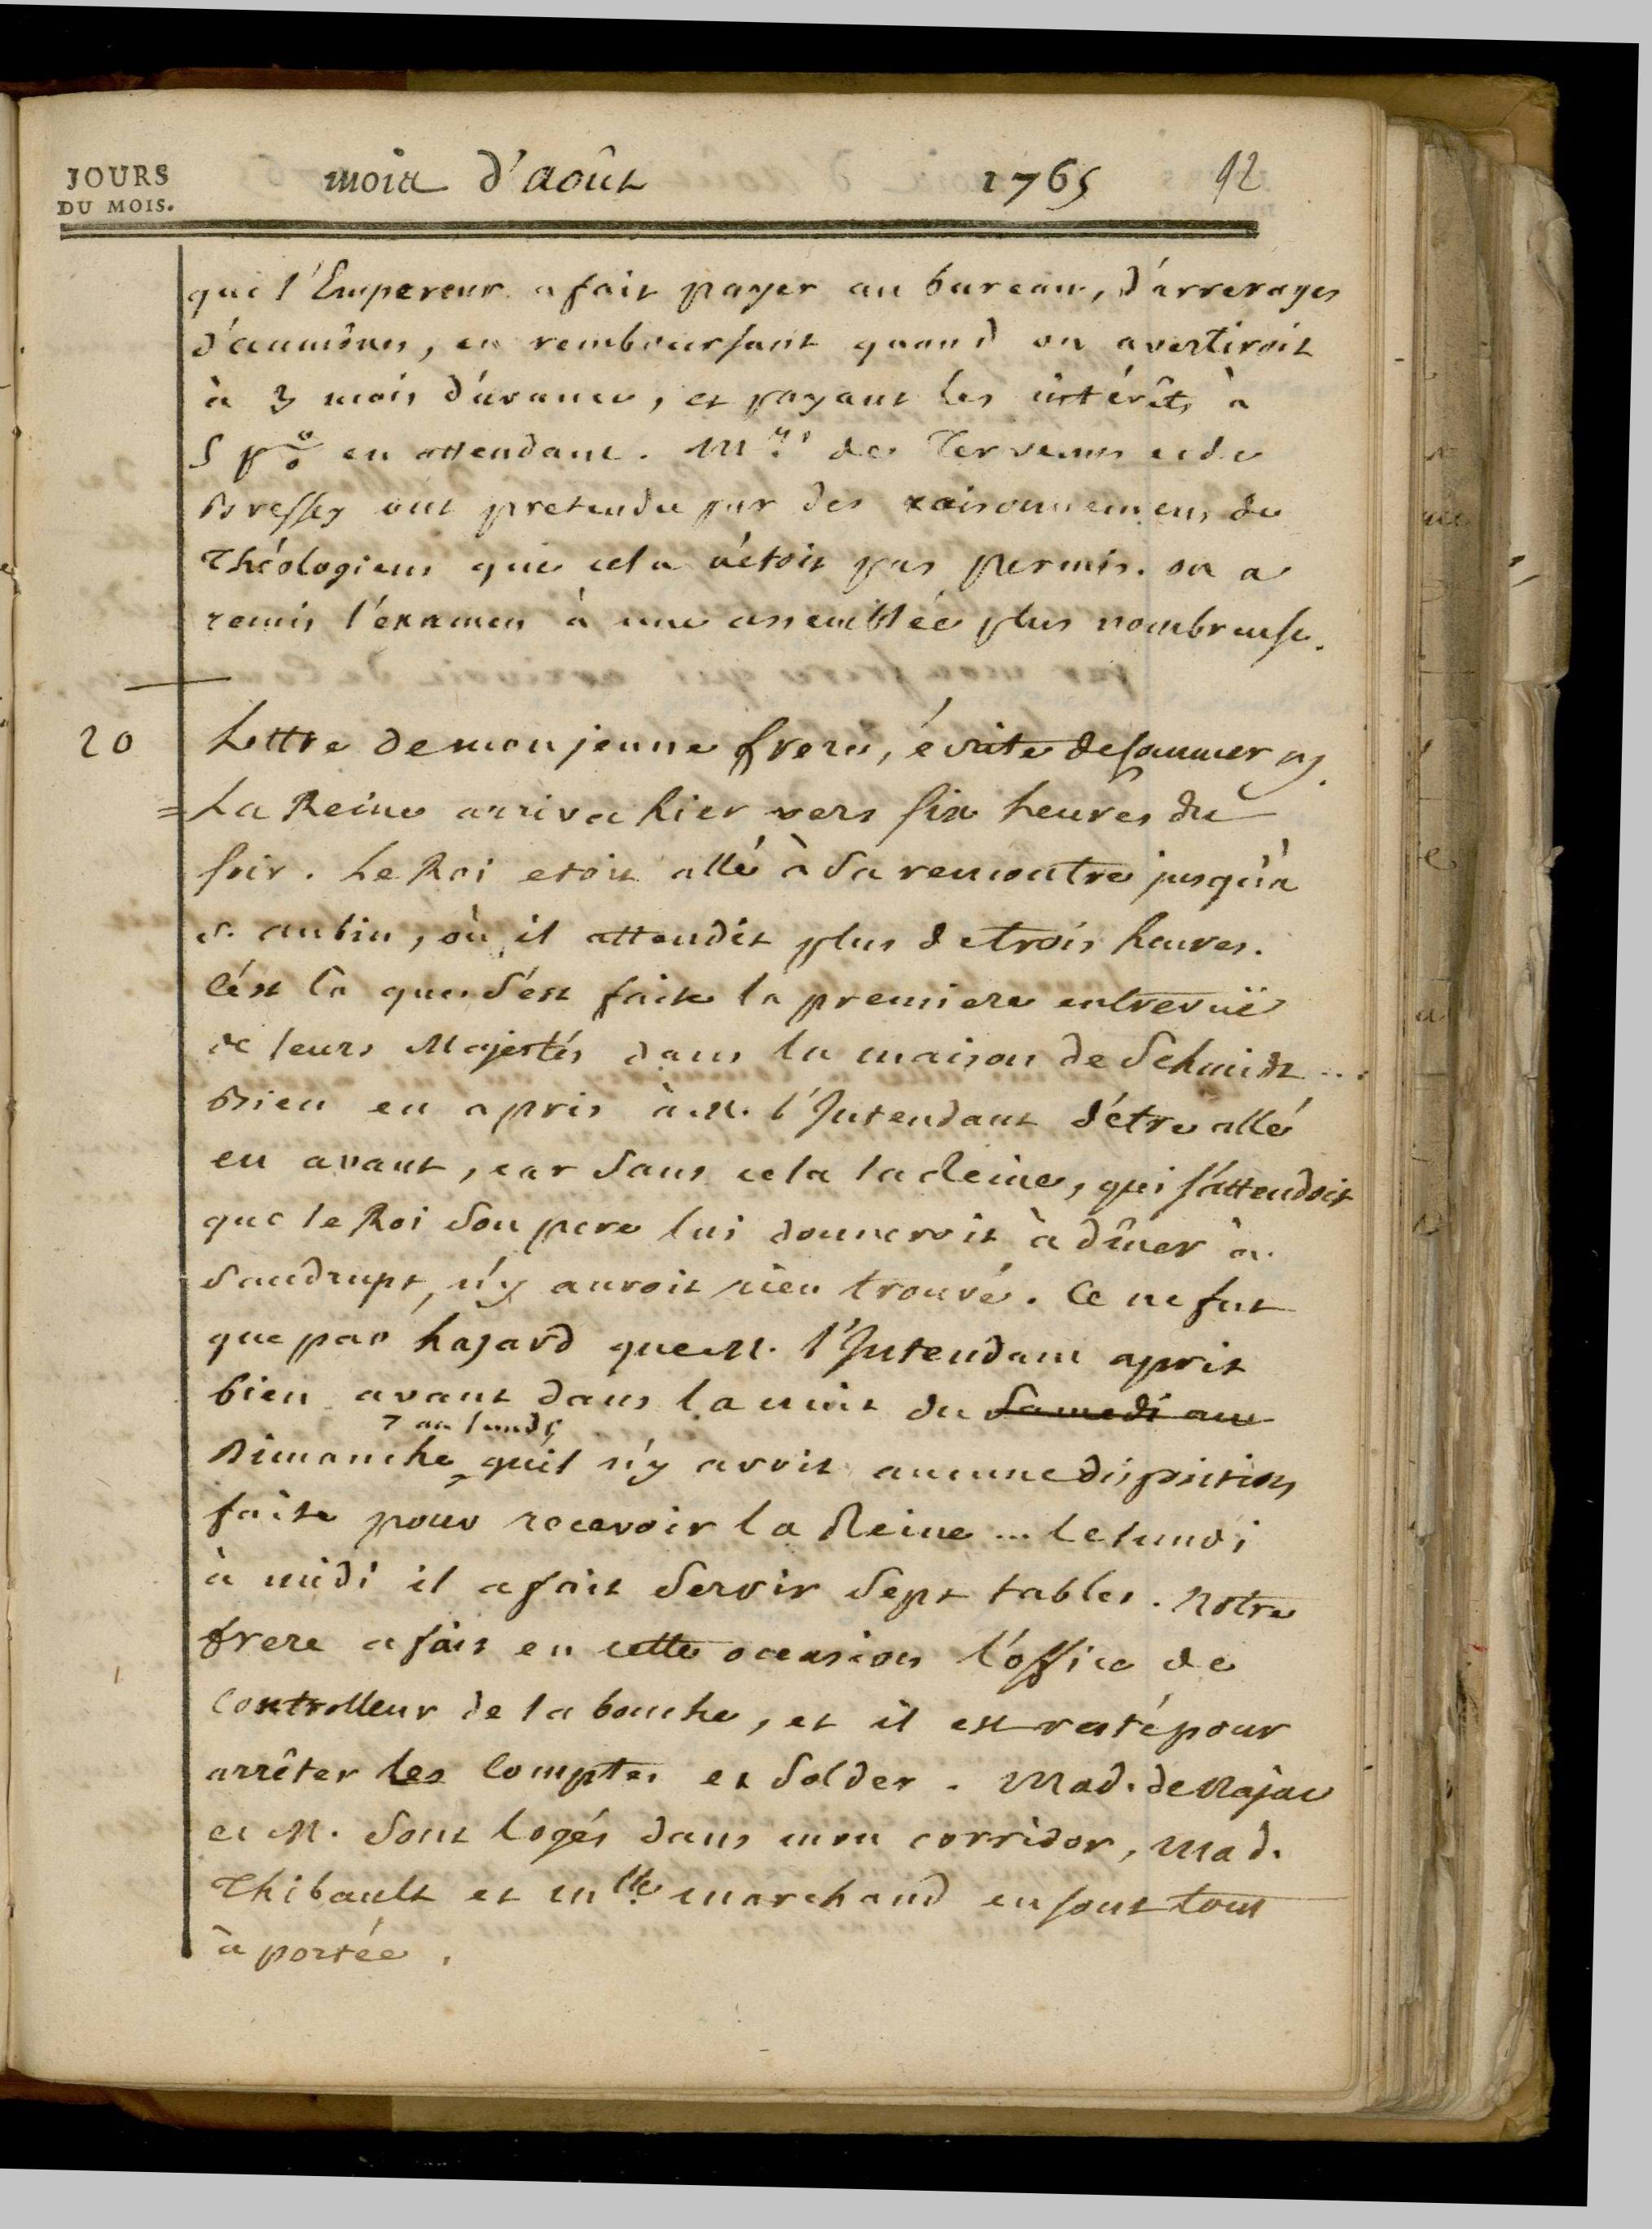 JOURS
DU MOIS.
mois d'août 1765 92
que l'Empereur a fait payer au bureau, d'arrerages
d'aumônes, en remboursant quand on avertiroit
à 3 mois d'avance, et payant les intérêts à
5 p% en attendant. Mrs. des Tervenus et de
Bressey ont pretendu par des raisonnemens de
Théologiens que cela n'étoit pas permis. on a
remis l'examen à une assemblée plus nombreuse.
20 Lettre de mon jeune frere, écrite de Commercy.
= La Reine arriva hier vers six heures du
soir. Le Roi etoit allé à Sa rencontre jusqu'à
S. aubin, où il attendit plus de trois heures.
C'est là que s'est faite la premiere entrevuë
de leurs Majestés dans la maison de Schmidt ...
Bien en a pris à M. l'Intendant d'être allé
en avant, car Sans cela la Reine, qui s'attendoit
que le Roi Son pere lui donneroit à dîner à
Saudrupt, n'y auroit rien trouvé. Ce ne fut
que par hazard que M. l'Intendant aprit
bien avant dans la nuit du Samedi au
7 au lundi
Dimanche qu'il n'y avoit aucune disposition
faite pour recevoir la Reine ... le lundi
à midi il a fait Servir Sept tables. Notre
frere a fait en cette occasion l'office de
Controlleur de la bouche, et il est resté pour
arrêter les Comptes et Solder. Mad. de
et M. Sont logés dans mon corridor, Mad.
Thibault et Mlle. marchand en sont tout
à portée.